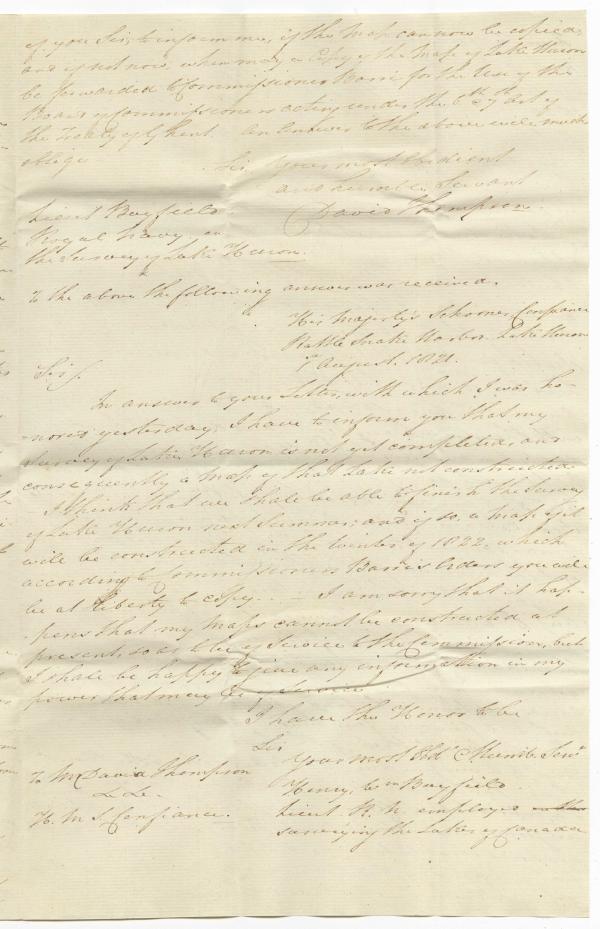 of you Sir, to inform me, if the Map can now be copied,
and if not now, when may a Copy of the Map of Lake Huron
be forwarded to Commissioner Barrie for the Use of the
Board of Commissioners acting under the 6th & 7th Art of
the Treaty of Ghent. An Answer to the above will much
oblige
Sir, Your most obedient
and humble Servant
David Thompson.
Lieut Bayfield
Royal Navy on
the Survey of Lake Huron.
To the above the following answer was received.
His Majesty's Schooner Confiance
Rattle Snake Harbor Lake Huron
August 1821.
Sir/
In answer to your Letter, with which I was ho-
nored yesterday, I have to inform you that my
Survey of Lake Huron is not yet completed, and
consequently a map of that Lake not constructed.
I think that we shall be able to finish the Survey
of Lake Huron next Summer, and if so, a map of it
will be constructed in the Winter of 1822, which
according to Commissioner Barrie's Orders you will
be at liberty to copy. — I am sorry that it hap-
pens that my maps cannot be constructed at
present, so as to be of Service to the Commission, but
I shall be happy to give any information in my
power that may be of Service.
I have the Honor to be
Sir
Your most Obdt Humble Servt
Henry Wm Bayfield.
Lieut R. N. employed in the
surveying the Lakes of Canada
To Mr David Thompson
&c &c.
H. M. S. Confiance.